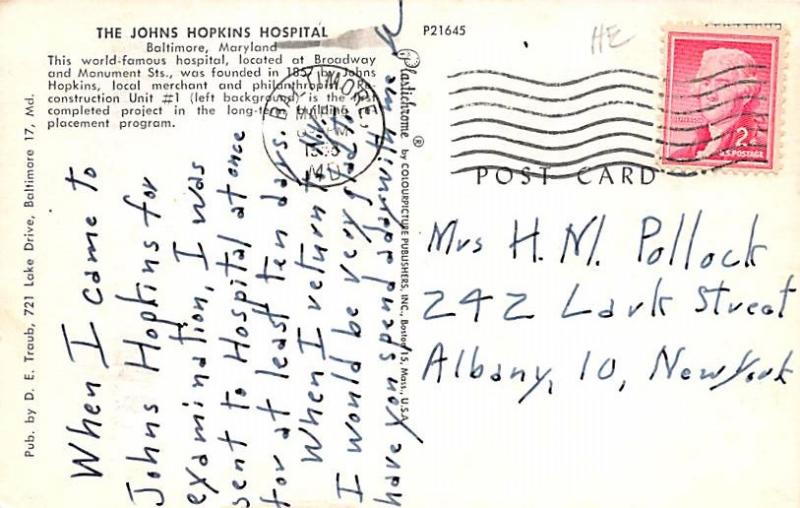 THE JOHNS HOPKINS HOSPITAL
Baltimore, Maryland
This world-famous hospital, located at Broadway
and Monument Sts., was founded in 1857 by Johns
Hopkins, local merchant and philanthropist.
construction Unit #1 (left background) is the first
completed project in the long-term building
placement program.
Pub. by D. E. Traub, 721 Lake Drive, Baltimore 17, Md.
When I came to
Johns Hopkins for
examination, I was
sent to Hospital at once
for at least ten days.
When I return to
I would be very glad to
have you spend a day with me
Plastichrome ® by COLOURPICTURE PUBLISHERS, INC., Boston 15, Mass., U.S.A.
P21645
HE
BALTIMORE,
PM
MD.
2¢
U.S. POSTAGE
POST CARD
Mrs H. M. Pollock
242 Lark Street
Albany, 10, New York